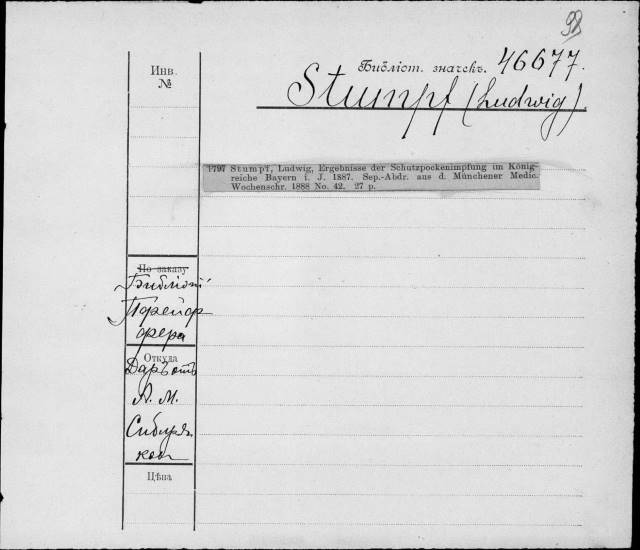 98
Инв.
№
Библіот. значекъ. 46677.
Stumpf (Ludwig).
1797 Stumpf, Ludwig, Ergebnisse der Schutzpockenimpfung im König-
reiche Bayern i. J. 1887. Sep.-Abdr. aus d. Münchener Medic.
Wochenschr. 1888 No. 42. 27 p.
По заказу
Портъей
фера
Откуда
Даръ отъ
А. М.
Сибиря
кова
Цѣна